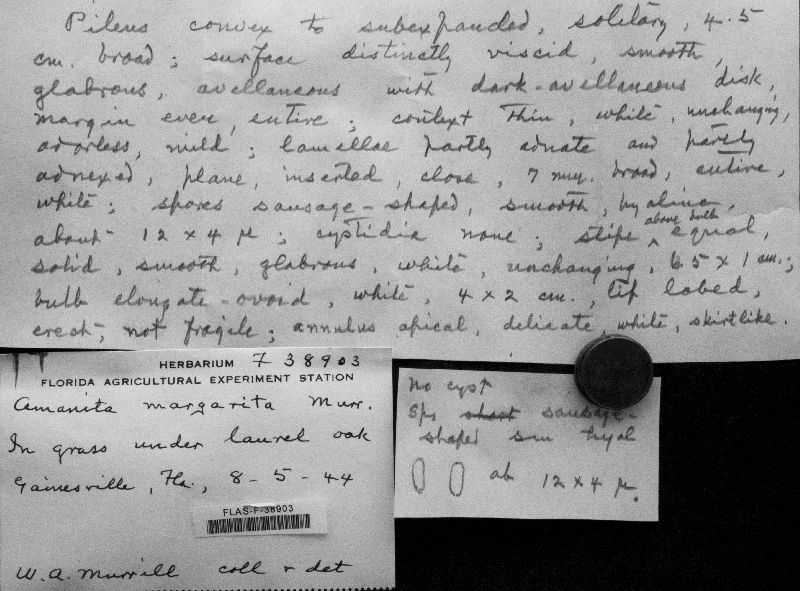 Pileus convex to subexpanded, solitary, 4.5
cm. broad; surface distinctly viscid, smooth,
glabrous, avellaneous with dark-avellaneous disk,
margin even, entire; context thin, white, unchanging,
odorless, mild; lamellae partly adnate and partly
adnexed, plane, inserted, close, 7 mm. broad, entire,
white; spores sausage-shaped, smooth, hyaline,
about 12 x 4 µ; cystidia none; stipe above bulb equal,
solid, smooth, glabrous, white, unchanging, 6.5 x 1 cm.;
bulb elongate-ovoid, white, 4 x 2 cm., lip lobed,
erect, not fragile; annulus apical, delicate, white, skirtlike.
HERBARIUM F 38903
FLORIDA AGRICULTURAL EXPERIMENT STATION
Amanita margarita Murr.
In grass under laurel oak
Gainesville, Fla., 8-5-44
FLAS-F-38903
W.A. Murrill coll & det
No cyst
Sps short sausage-
shaped sm hyal
ab 12 x 4 µ.